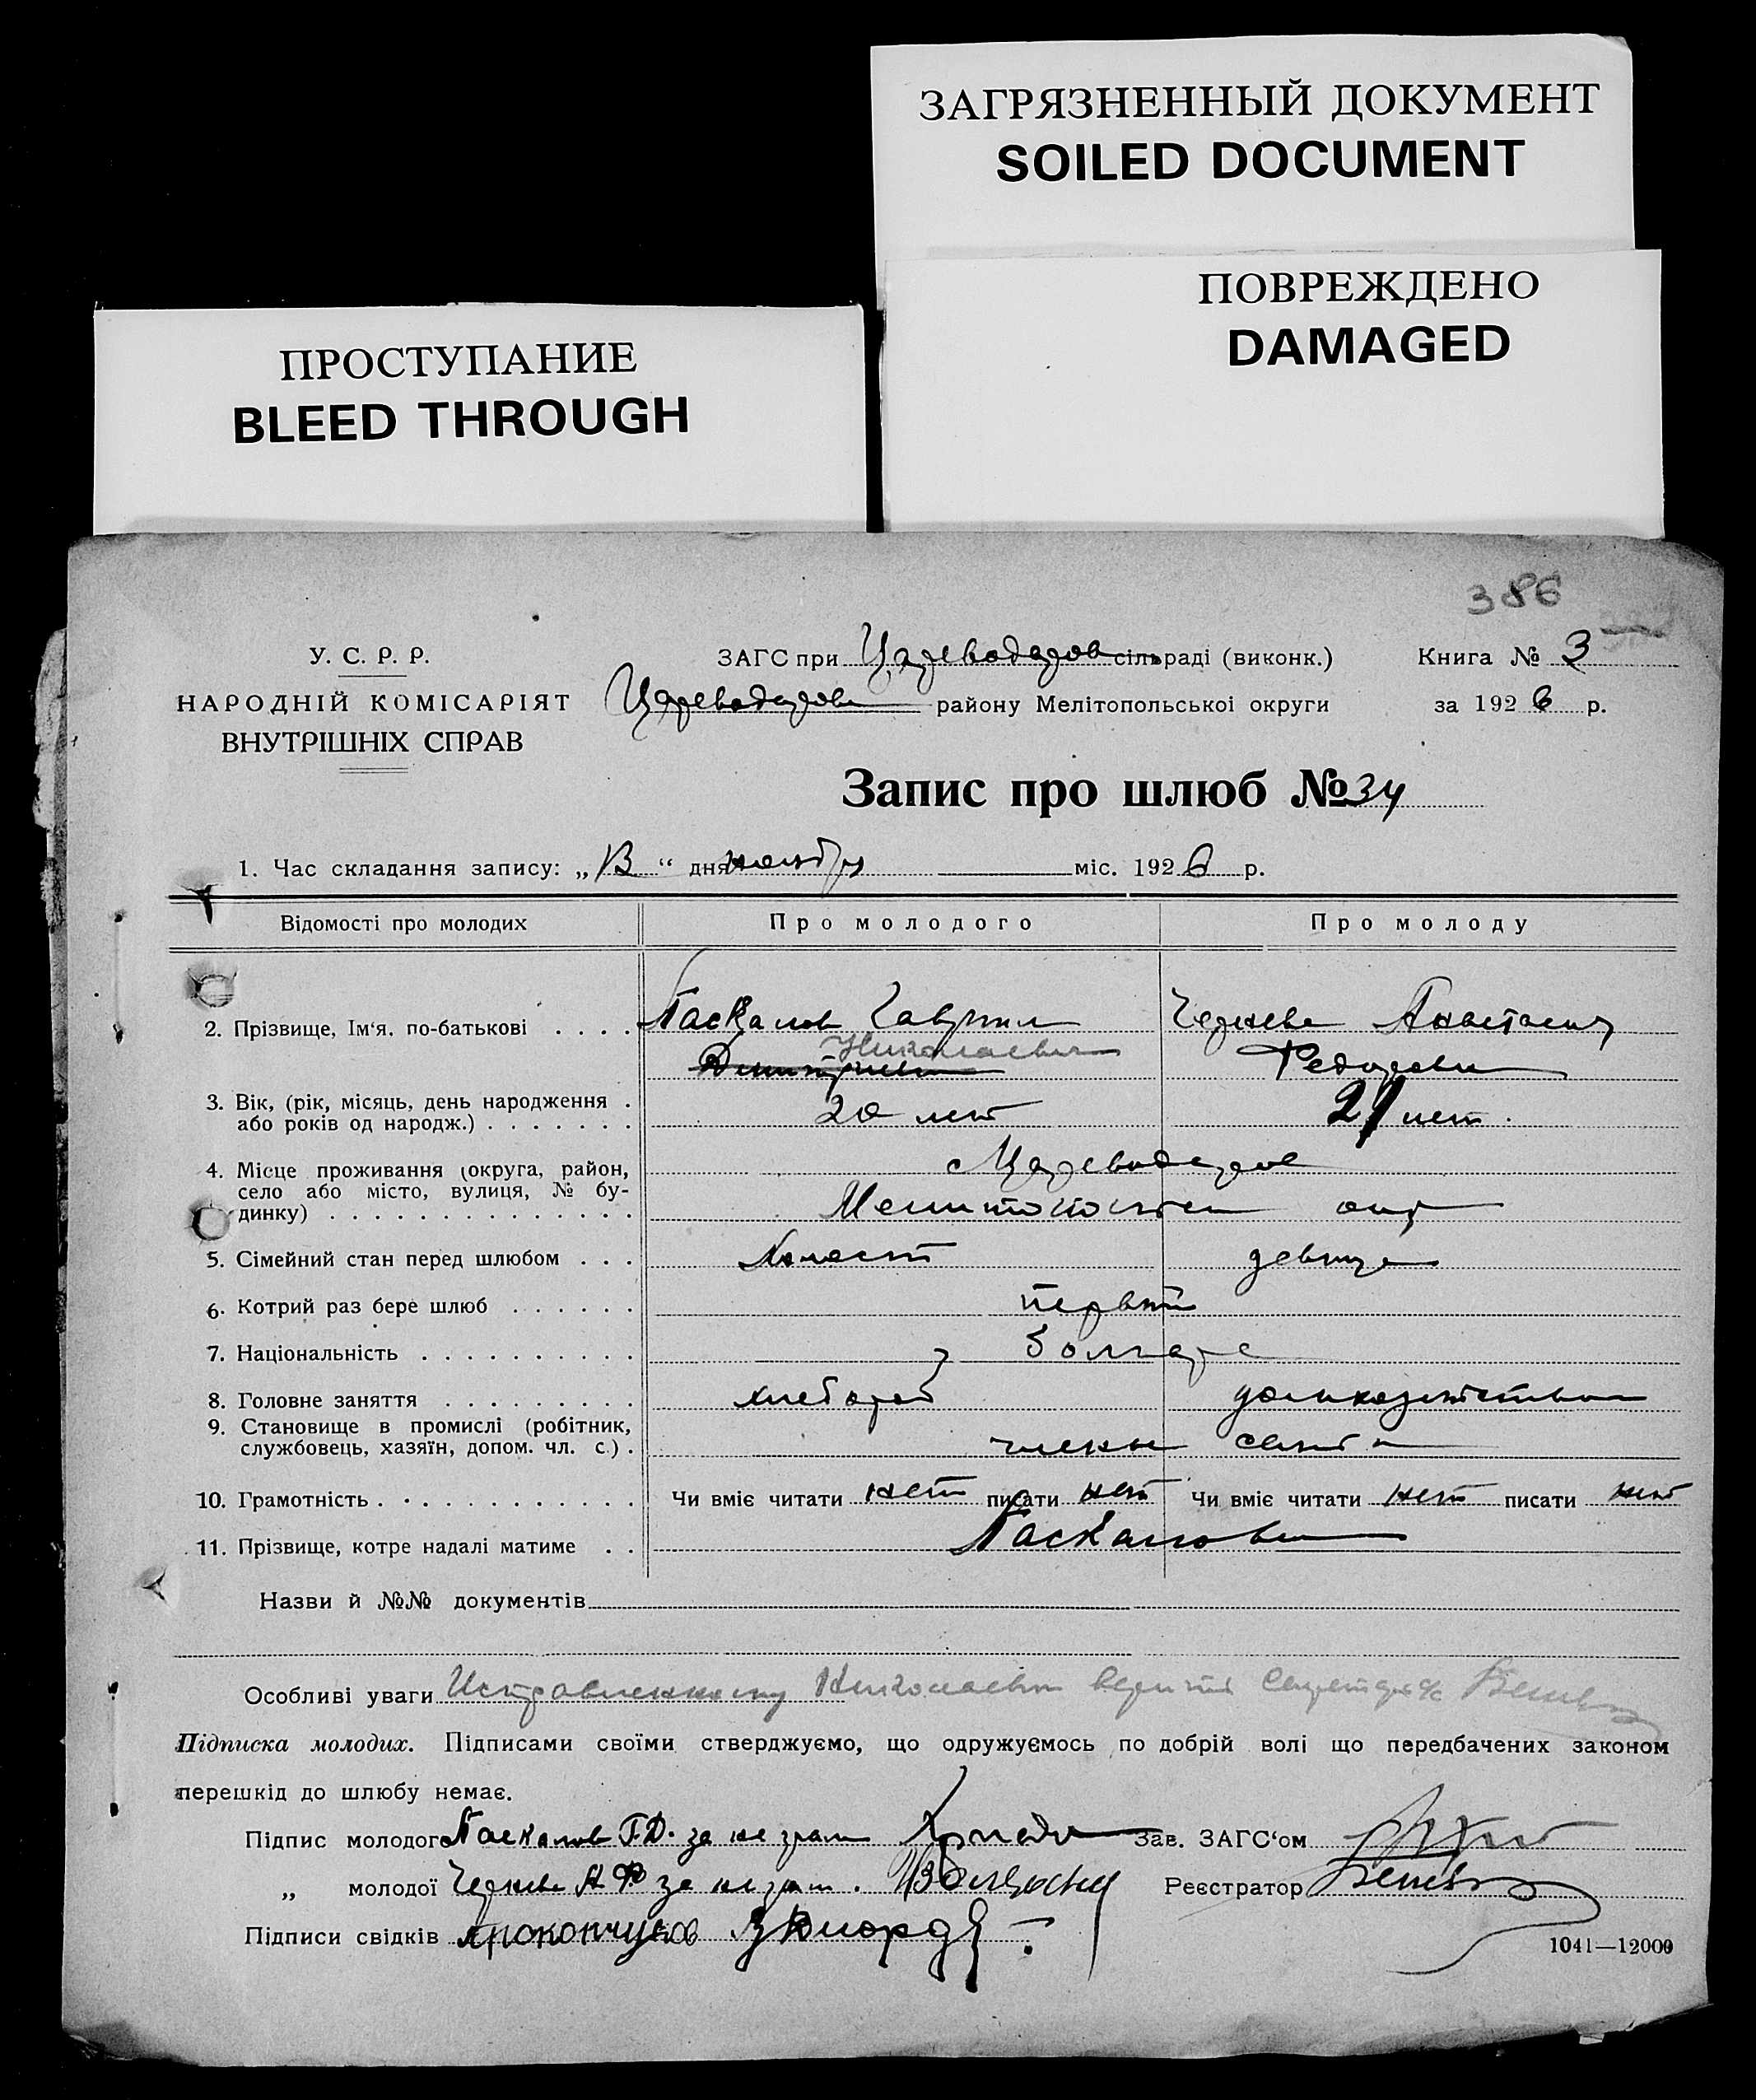 ЗАГРЯЗНЕННЫЙ ДОКУМЕНТ
SOILED DOCUMENT
ПОВРЕЖДЕНО
DAMAGED
ПРОСТУПАНИЕ
BLEED THROUGH
386
У. С. Р. Р.
НАРОДНІЙ КОМІСАРІЯТ
ВНУТРІШНІХ СПРАВ
ЗАГС при Цареводаров сільраді (виконк.) Книга № 3
Цареводаров району Мелітопольської округи за 1926 р.
Запис про шлюб № 34
1. Час складання запису: „13“ дня ноября міс. 1926 р.
Відомості про молодих Про молодого Про молоду
2. Прізвище, Ім'я, по-батькові . . . . Паскалов Гаврил Чернева Анастасия
Димитриев Николаевич Федорова
3. Вік, (рік, місяць, день народження . або років од народж.) . . . . . . . 20 лет 21 лет.
4. Місце проживання (округа, район, Цареводаров
село або місто, вулиця, № бу-
динку) . . . . . . . . . . . . . . Мелитопольск окр
5. Сімейний стан перед шлюбом . . . Холост девица
6. Котрий раз бере шлюб . . . . . . первый
7. Національність . . . . . . . . . . болгаре
8. Головне заняття . . . . . . . . . хлебороб домохозяйством
9. Становище в промислі (робітник,
службовець, хазяїн, допом. чл. с.) . члены семьи
10. Грамотність . . . . . . . . . . . . Чи вміє читати нет писати нет Чи вміє читати нет писати нет
11. Прізвище, котре надалі матиме . . Паскаловы
Назви й №№ документів
Особливі уваги Исправленному Николаевич верить Секретарь с/с
Підписка молодих. Підписами своїми стверджуємо, що одружуємось по добрій волі що передбачених законом
перешкід до шлюбу немає.
Підпис молодого Паскалов Г.Д. за не грам Зав. ЗАГС'ом
„ молодої Чернева А Ф за не грам. Реєстратор
Підписи свідків Прокопчуков
1041—12000